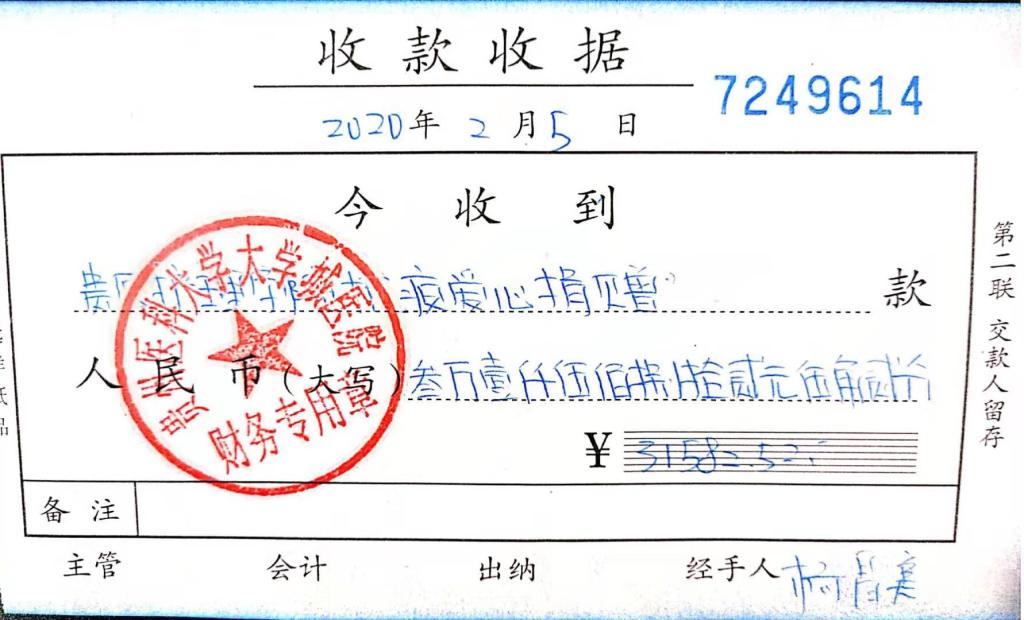 收款收据
7249614
2020年2月5日
今收到
贵医 疫爱心捐赠款
人民币(大写)叁万壹仟伍佰捌拾贰元伍角贰分
¥31582.52
备注
主管 会计 出纳 经手人 杨
第二联 交款人留存
贵州医科大学大学城医院
财务专用章